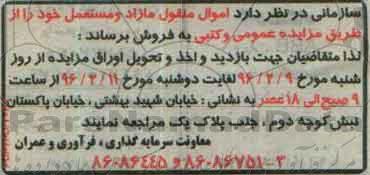 سازمانی در نظر دارد اموال منقول مازاد ومستعمل خود را از
طریق مزایده عمومی وکتبی به فروش برساند :
لذا متقاضیان جهت بازدید و اخذ و تحویل اوراق مزایده از روز
شنبه مورخ ۹۶/۲/۹ لغایت دوشنبه مورخ ۹۶/۲/۱۱ از ساعت
۹ صبح الی ۱۸ عصر به نشانی : خیابان شهید بهشتی ، خیابان پاکستان
نبش کوچه دوم ، جنب پلاک یک مراجعه نمایند
معاونت سرمایه گذاری ، فرآوری و عمران
۸۶۰۸۶۷۵۱-۳ و ۸۶۰۸۶۴۴۵